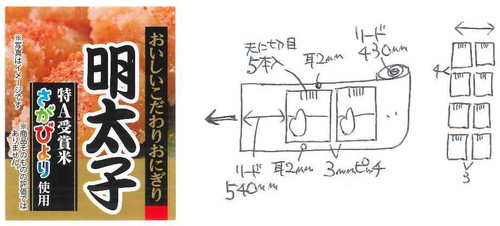 おいしいこだわりおにぎり
明太子
特A受賞米
さがびより
使用
※写真はイメージです。
※商品そのものの評価では
ありません。
天に切り目
5本入
耳2mm
リード
430mm
リード
540mm
耳2mm
3mmピッチ
4
3